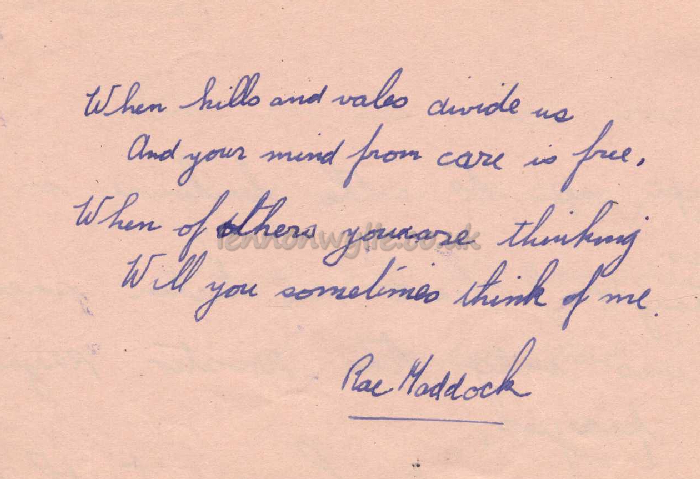 When hills and vales divide us
And your mind from care is free,
When of others you are thinking
Will you sometimes think of me.
Rae Maddock
lennonwylie.co.uk